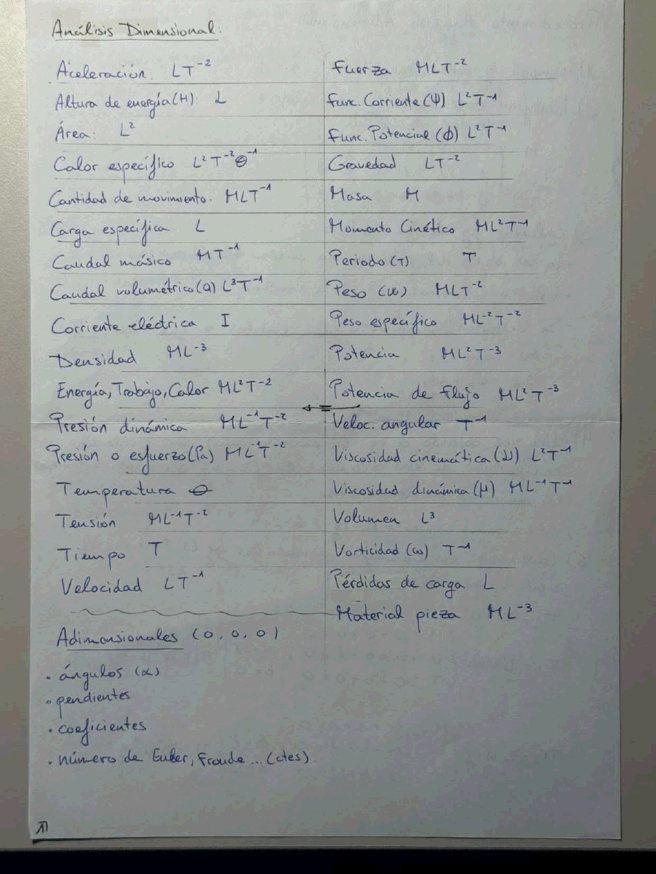 Análisis Dimensional:
Aceleración: LT⁻²
Altura de energía (H): L
Área: L²
Calor específico L²T⁻²Θ⁻¹
Cantidad de movimiento: MLT⁻¹
Carga específica L
Caudal másico MT⁻¹
Caudal volumétrico (Q) L³T⁻¹
Corriente eléctrica I
Densidad ML⁻³
Energía, Trabajo, Calor ML²T⁻²
Presión dinámica ML⁻¹T⁻²
Presión o esfuerzo (Pa) ML⁻¹T⁻²
Temperatura Θ
Tensión ML⁻¹T⁻²
Tiempo T
Velocidad LT⁻¹
Fuerza MLT⁻²
Func. Corriente (Ψ) L²T⁻¹
Func. Potencial (ϕ) L²T⁻¹
Gravedad LT⁻²
Masa M
Momento Cinético ML²T⁻¹
Periodo (T) T
Peso (W) MLT⁻²
Peso específico ML⁻²T⁻²
Potencia ML²T⁻³
Potencia de flujo ML²T⁻³
Veloc. angular T⁻¹
Viscosidad cinemática (ν) L²T⁻¹
Viscosidad dinámica (μ) ML⁻¹T⁻¹
Volumen L³
Vorticidad (ω) T⁻¹
Pérdidas de carga L
Material pieza ML⁻³
Adimensionales (0,0,0)
· ángulos (α)
· pendientes
· coeficientes
· número de Euler, Froude... (ctes)